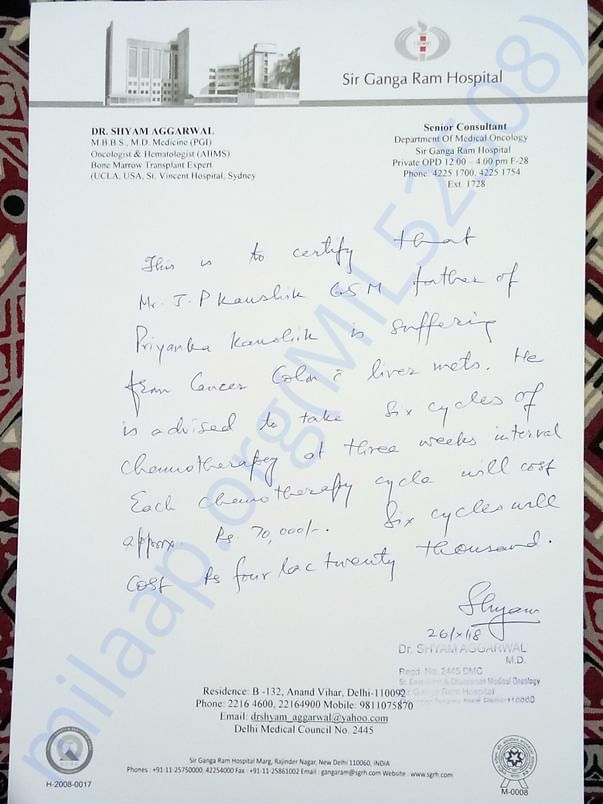 Sir Ganga Ram Hospital
DR. SHYAM AGGARWAL
M.B.B.S., M.D. Medicine (PGI)
Oncologist & Hematologist (AIIMS)
Bone Marrow Transplant Expert
(UCLA, USA, St. Vincent Hospital, Sydney
Senior Consultant
Department Of Medical Oncology
Sir Ganga Ram Hospital
Private OPD 12.00 - 4.00 pm F-28
Phone. 4225 1700, 4225 1754
Ext. 1728
This is to certify that
Mr. J.P Kaushik 65M father of
Priyanka Kaushik is suffering
from Cancer Colon c̄ liver mets. He
is advised to take six cycles of
chemotherapy at three weeks interval
Each chemotherapy cycle will cost
approx Rs 70,000/-. Six cycles will
cost Rs four lac twenty thousand.
Shyam
26/x/18
Dr. SHYAM AGGARWAL
M.D.
Regd. No. 2445 DMC
Sr. Consultant & Chairman Medical Oncology
Sir Ganga Ram Hospital
Residence: B -132, Anand Vihar, Delhi-110092
Phone: 2216 4600, 22164900 Mobile: 9811075870
Email: drshyam_aggarwal@yahoo.com
Delhi Medical Council No. 2445
Sir Ganga Ram Hospital Marg, Rajinder Nagar, New Delhi 110060, INDIA
Phones : +91-11-25750000, 42254000 Fax : +91-11-25861002 Email : gangaram@sgrh.com Website : www.sgrh.com
H-2008-0017
M-0008
milaap.org(MIL52508)